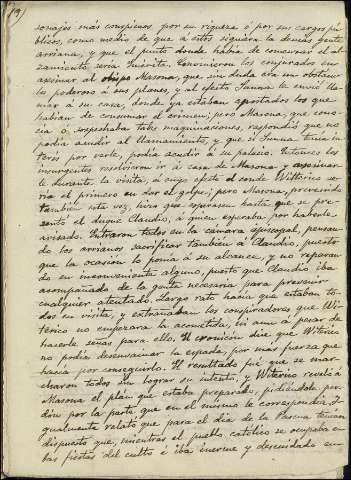 13)
sonajes más conspicuos por su riqueza ó por sus cargos pú-
blicos, como medio de que á estos siguiera la demás gente
arriana, y que el punto donde había de comenzar el al-
zamiento sería Mérida. Convinieron los conjurados en
asesinar al obispo Masona, que sin duda era un obstácu-
lo poderoso á sus planes, y al efecto Sunna le envió lla-
mar á su casa, donde ya estaban apostados los que
habían de consumar el crimen; pero Masona, que cono-
cía ó sospechaba tales maquinaciones, respondió que no
podía acudir al llamamiento, y que si Sunna tenía in-
terés por verle, podía acudir á su palacio. Entonces los
insurgentes resolvieron ir á casa de Masona y asesinar-
le durante la visita, á cuyo efecto el conde Witterico se-
ría el primero en dar el golpe; pero Masona, prevenido
también esta vez, hizo que esperasen hasta que se pre-
sentó el duque Claudio, á quien esperaba por haberle
avisado. Entraron todos en la cámara episcopal, pensan-
do los arrianos sacrificar también á Claudio, puesto
que la ocasión lo ponía á su alcance, y no reparan-
do en inconveniente alguno, puesto que Claudio iba
acompañado de la gente necesaria para prevenir
cualquier atentado. Largo rato hacía que estaban to-
dos en visita, y extrañaban los conspiradores que Wi-
terico no empezara la acometida, ni aun á pesar de
hacerle señas para ello. El cronicón dice que Witerico
no podía desenvainar la espada, por mas fuerza que
hacía por conseguirlo. El resultado fué que se mar-
charon todos sin lograr su intento, y Witerico reveló á
Masona el plan que estaba preparado, pidiéndole per-
dón por la parte que en el mismo le correspondía. I-
gualmente relató que para el día de la Pascua tenían
dispuesto que, mientras el pueblo católico se ocupaba en
las fiestas del culto é iba inerme y descuidado en